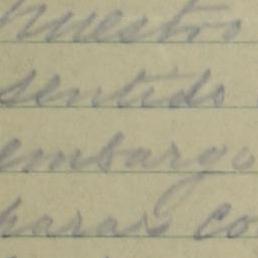 nuestro
sentido
embargo
paras co